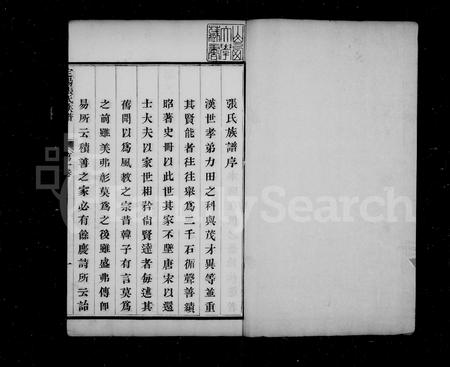 張氏族譜序
漢世孝弟力田之科與茂才異等並重
其賢能者往往舉爲二千石循聲善績
昭著史冊以此世其家不墜唐宋以還
士大夫以家世相矜尙賢達者每述其
舊聞以爲風敎之宗昔韓子有言莫爲
之前雖美弗彰莫爲之後雖盛弗傳師
易所云積善之家必有餘慶詩所云詒
氏族譜